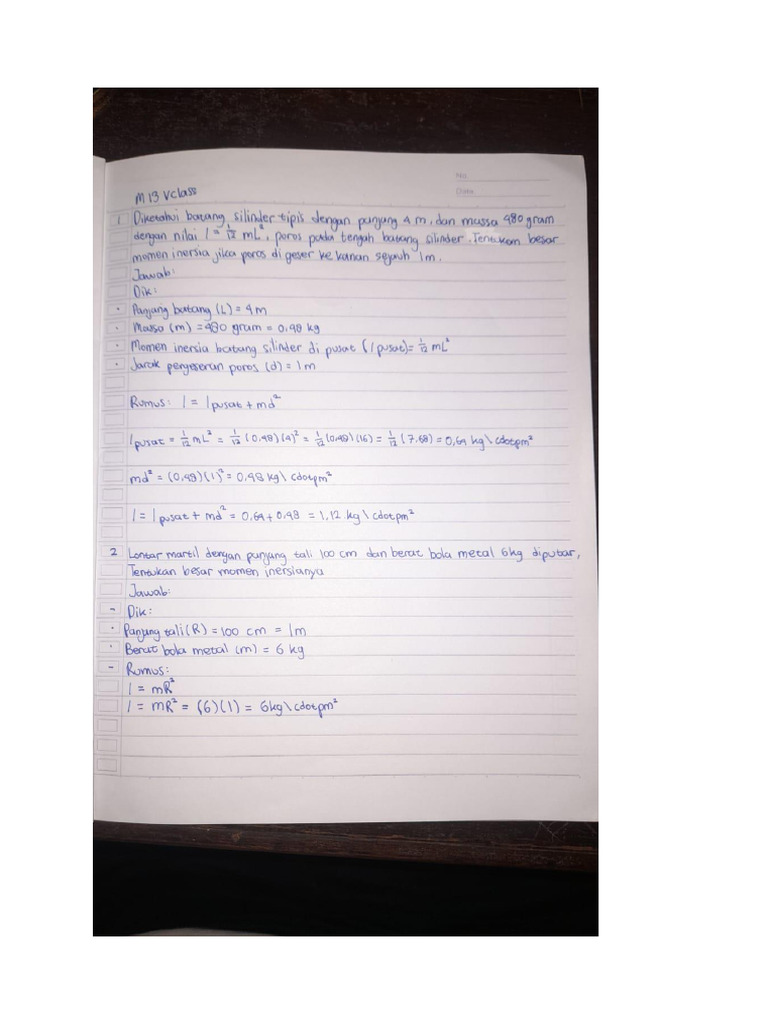 No.
Date
M 13 Vclass
1 Diketahui batang silinder tipis dengan panjang 4 m, dan massa 480 gram
dengan nilai I = 1/12 mL², poros pada tengah batang silinder. Tentukan besar
momen inersia jika poros di geser ke kanan sejauh 1m.
Jawab:
Dik:
• Panjang batang (L) = 4m
• Massa (m) = 480 gram = 0,48 kg
• Momen inersia batang silinder di pusat (I pusat) = 1/12 mL²
• Jarak pergeseran poros (d) = 1m
Rumus: I = I pusat + md²
I pusat = 1/12 mL² = 1/12 (0,48)(4)² = 1/12 (0,48)(16) = 1/12 (7.68) = 0,64 kg\cdotpm²
md² = (0,48)(1)² = 0,48 kg\cdotpm²
I = I pusat + md² = 0,64 + 0,48 = 1,12 kg\cdotpm²
2 Lontar martil dengan panjang tali 100 cm dan berat bola metal 6kg diputar,
Tentukan besar momen inersianya
Jawab:
- Dik:
• Panjang tali (R) = 100 cm = 1m
• Berat bola metal (m) = 6 kg
- Rumus:
I = mR²
I = mR² = (6)(1) = 6kg\cdotpm²